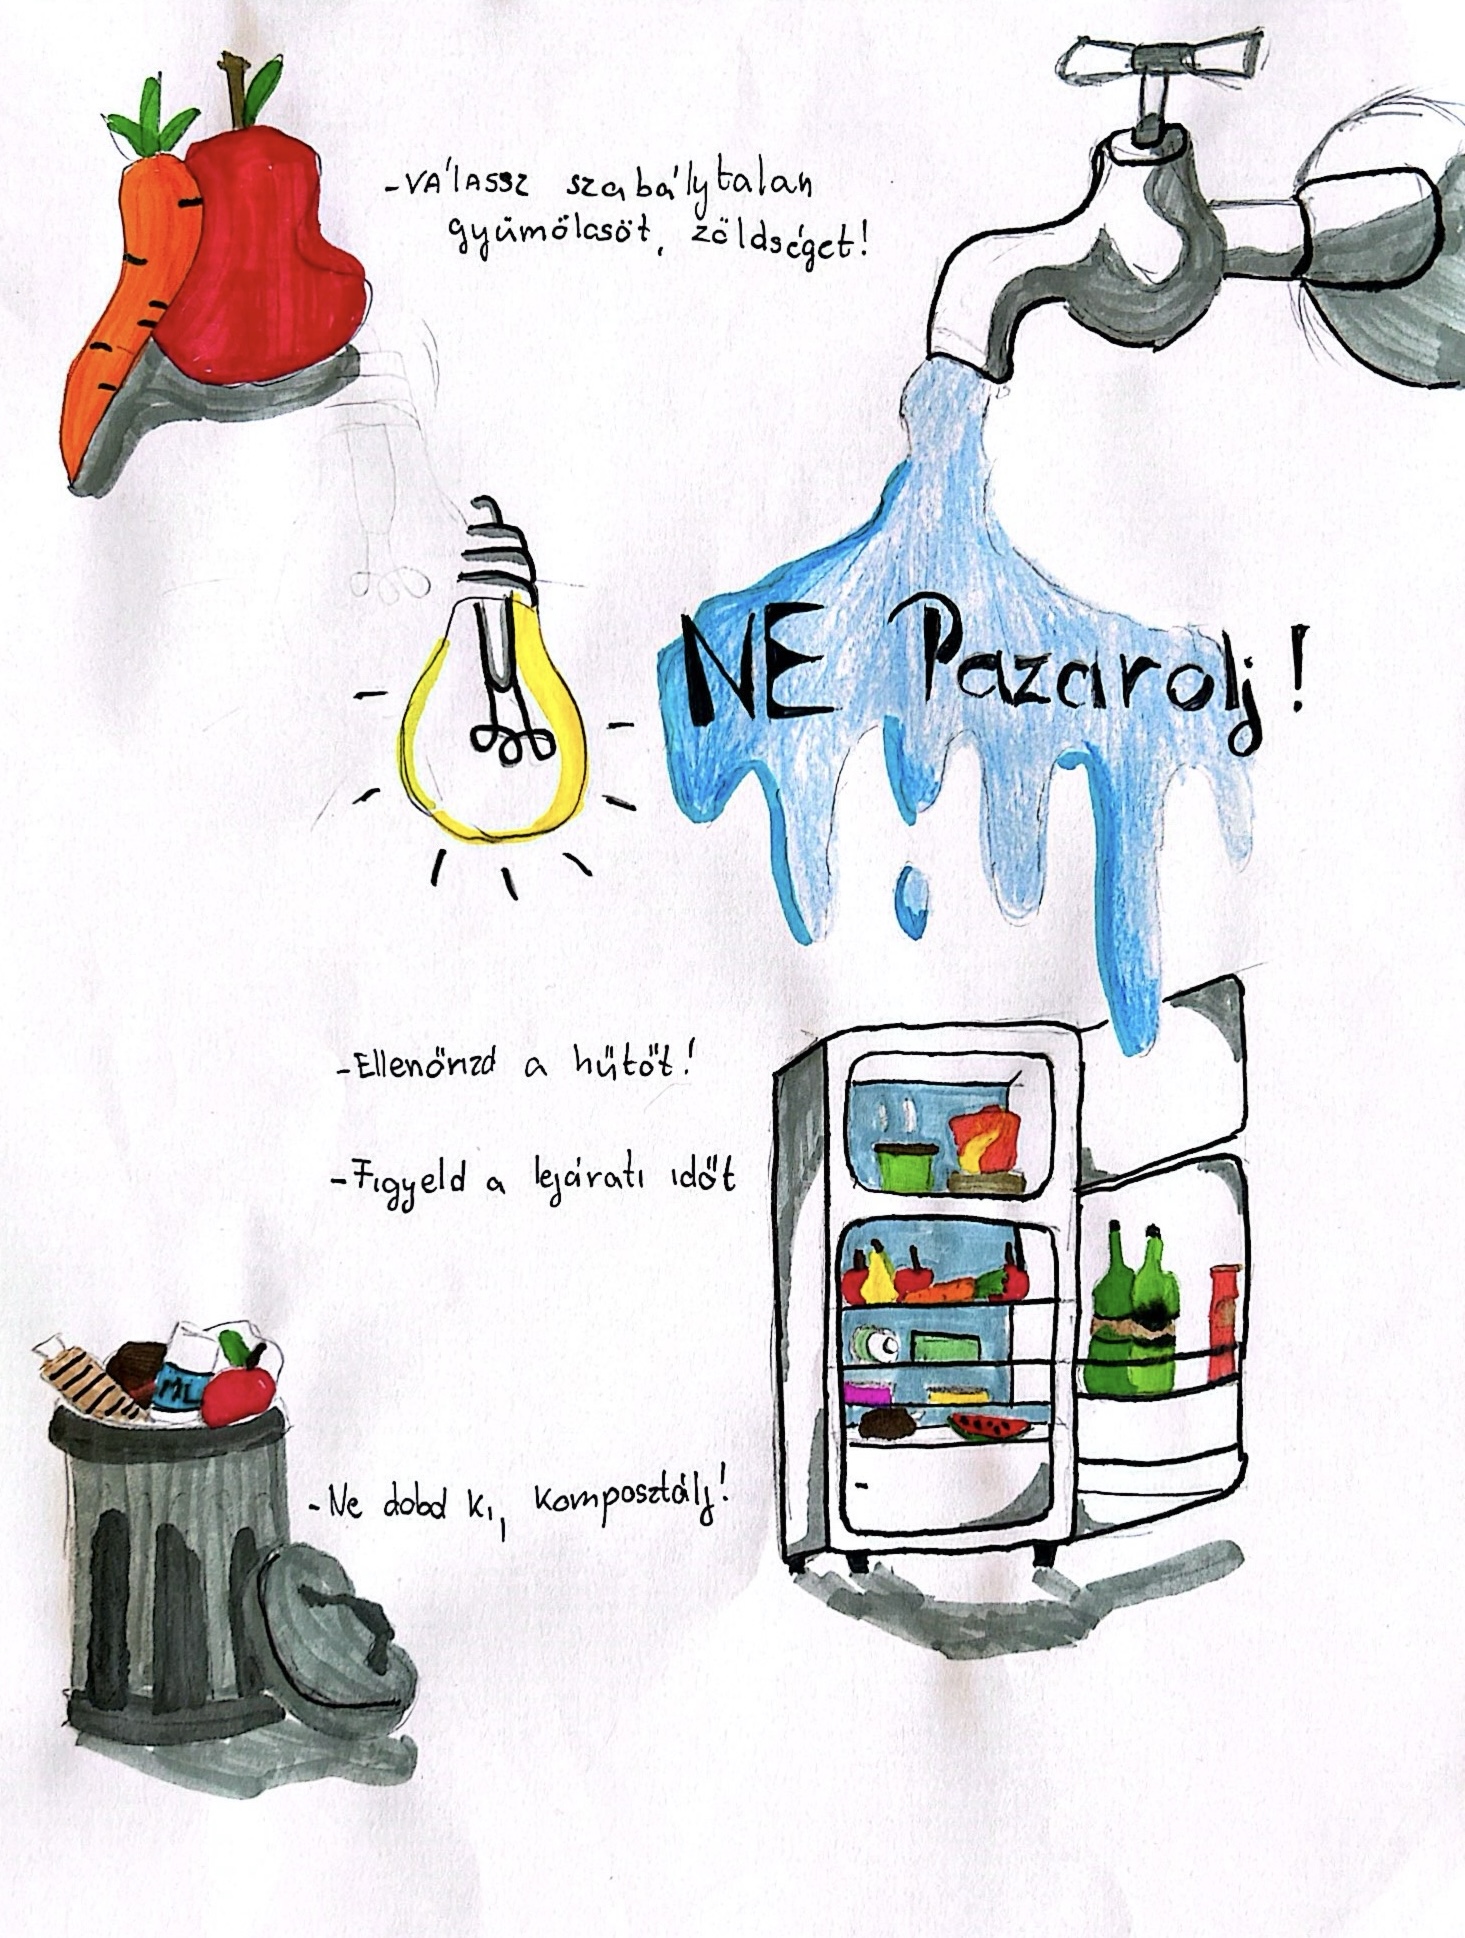 -VÁlASSZ szabálytalan
gyümölcsöt, zöldséget!
NE Pazarolj!
-Ellenőrizd a hűtőt!
-Figyeld a lejárati időt
ML
-Ne dobd ki, komposztálj!